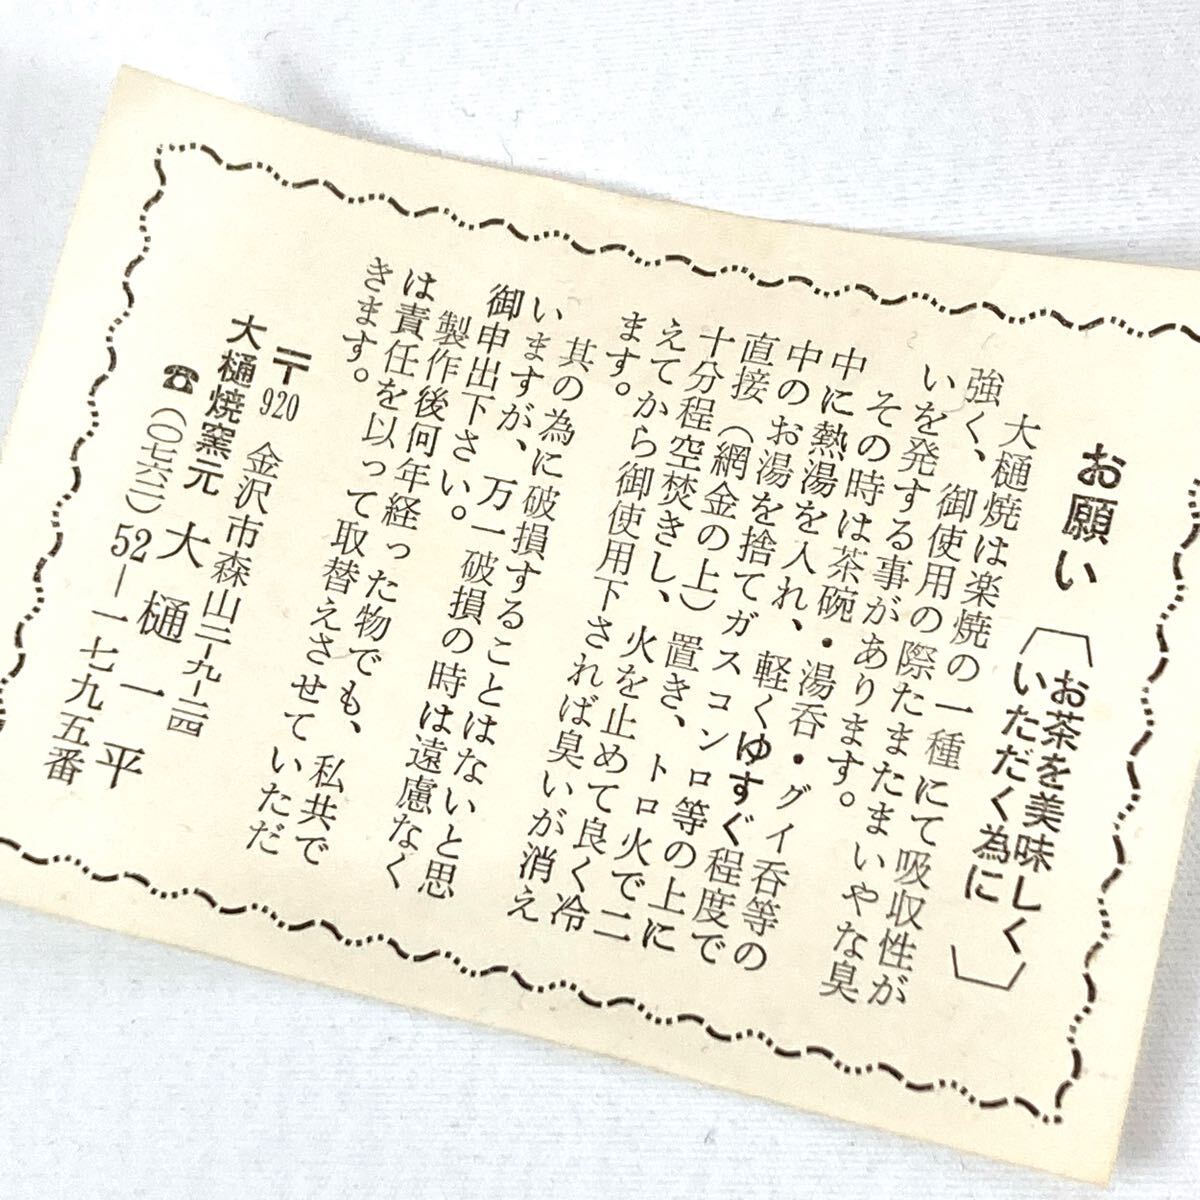 お願い
お茶を美味しく
いただく為に
大樋焼は楽焼の一種にて吸収性が
強く、御使用の際たまたまいやな臭
いを発する事があります。
その時は茶碗・湯呑・グイ呑等の
中に熱湯を入れ、軽くゆすぐ程度で
中のお湯を捨てガスコンロ等の上に
直接(網金の上)置き、トロ火で二
十分程空焚きし、火を止めて良く冷
えてから御使用下されば臭いが消え
ます。
其の為に破損することはないと思
いますが、万一破損の時は遠慮なく
御申出下さい。
製作後何年経った物でも、私共で
は責任を以って取替えさせていただ
きます。
〒920 金沢市森山二ー九ー二四
大樋焼窯元 大樋一平
☎(〇七六二)52ー一七九五番